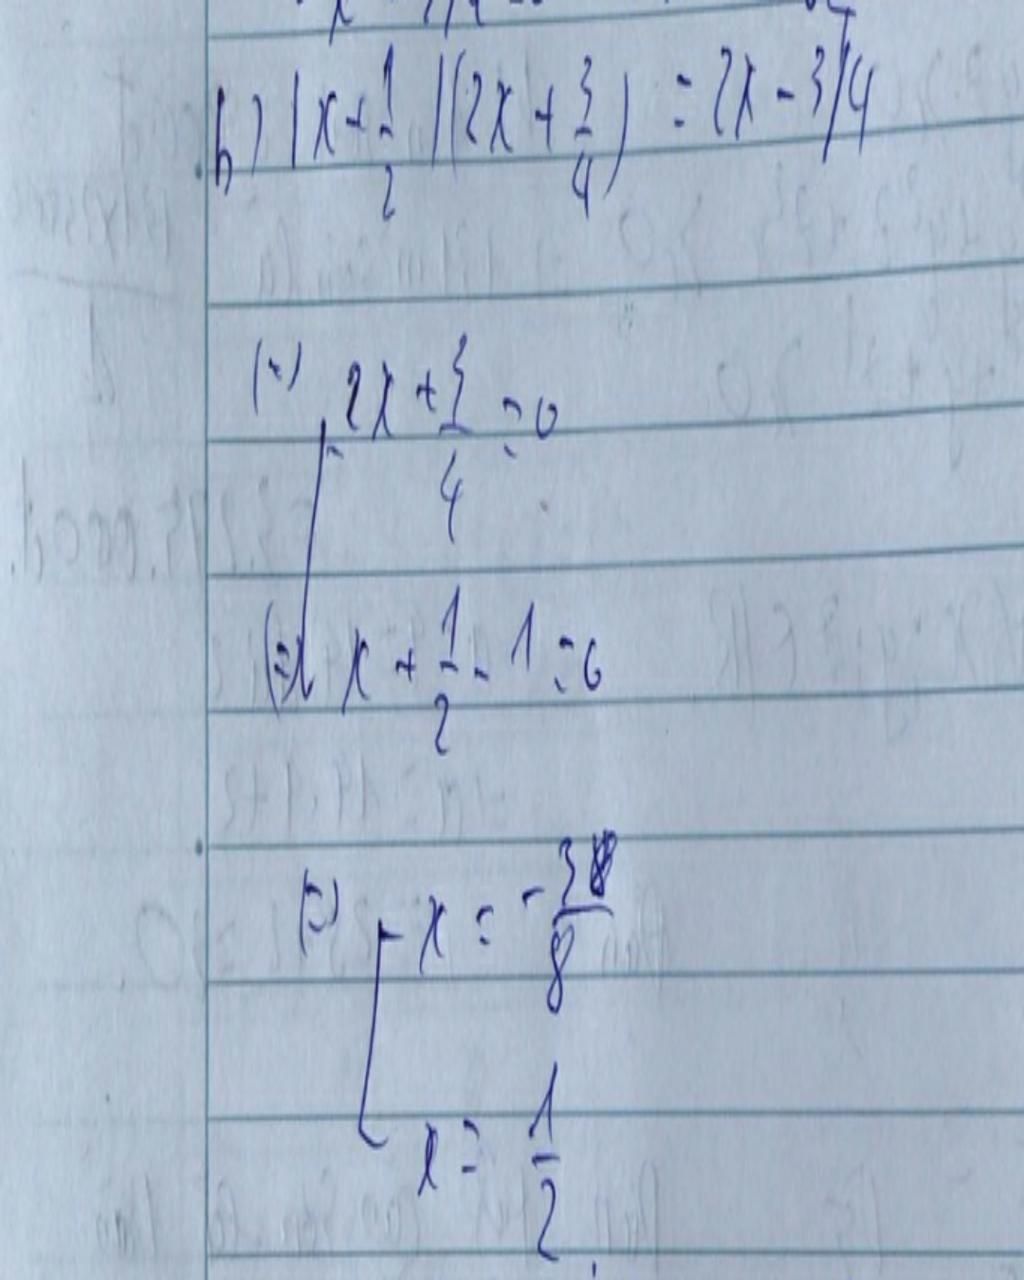 b) (x + 1/2)(2x + 3/4) = 2x - 3/4
(=) [ 2x + 3/4 = 0
(=) x + 1/2 - 1 = 0
(=) [ x = -3/8
x = 1/2